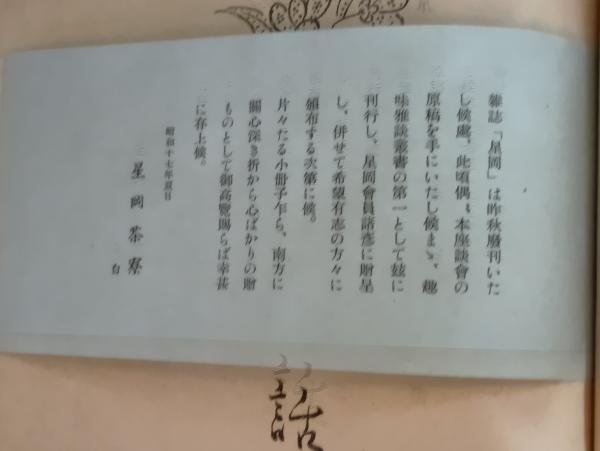 雜誌「星岡」は昨秋廢刊いた
し候處、此頃偶〻本座談會の
原稿を手にいたし候まゝ、趣
味雅談叢書の第一として玆に
刊行し、星岡會員諸彥に贈呈
し、併せて希望有志の方々に
頒布する次第に候。
片々たる小冊子乍ら、南方に
關心深き折から心ばかりの贈
ものとして御高覽賜らば幸甚
に存上候。
昭和十七年夏日
星岡茶寮
白
話